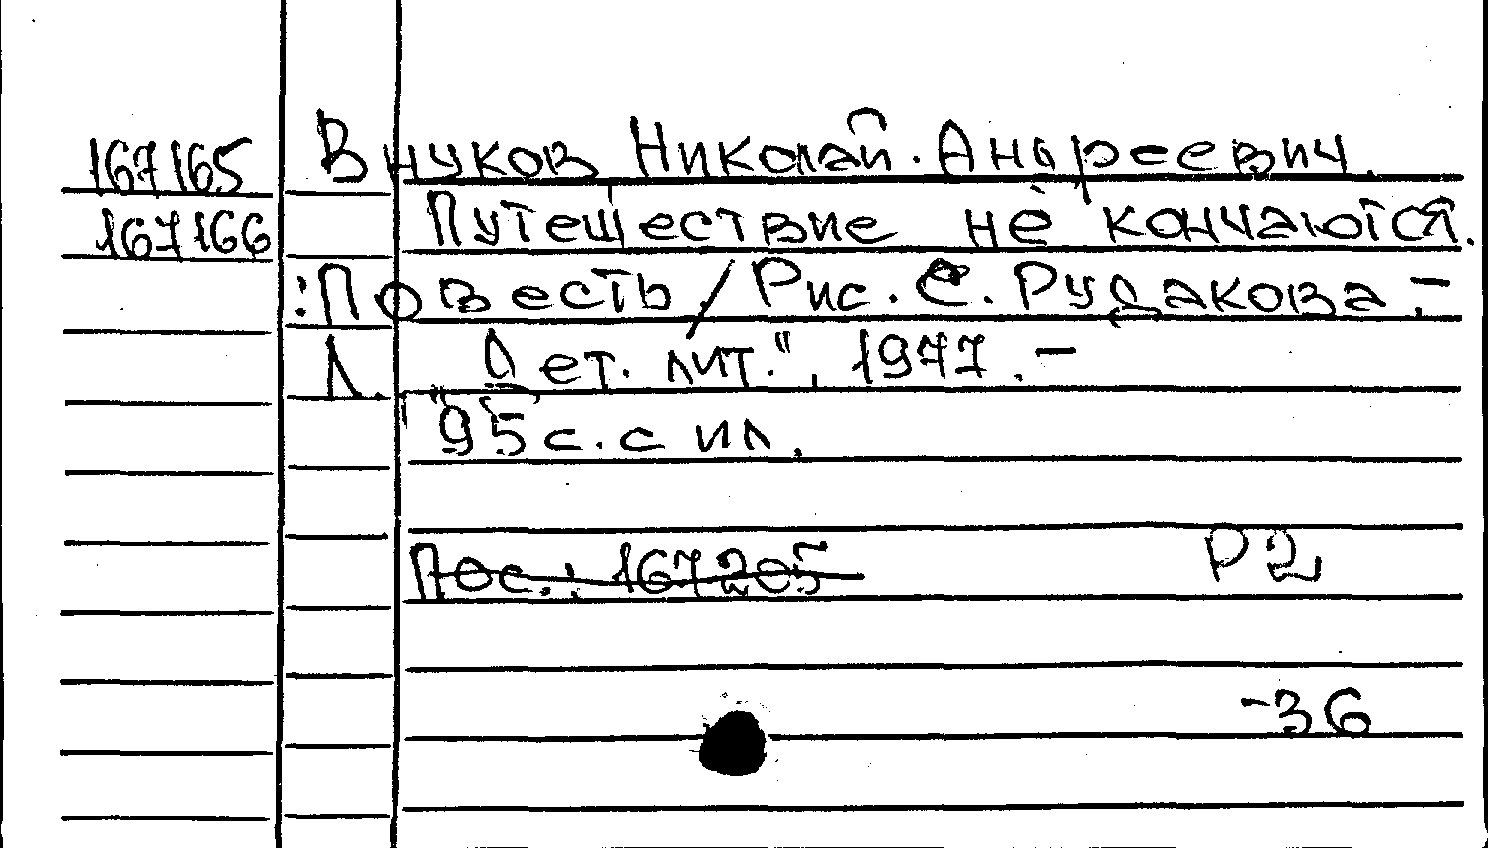 167165 Внуков Николай Андреевич.
167166 Путешествие не кончаются.
: Повесть / Рис. С. Рудакова. -
Л. "Дет. лит.", 1977. -
95 с. с ил.
Пос.: 167205 Р2
-36